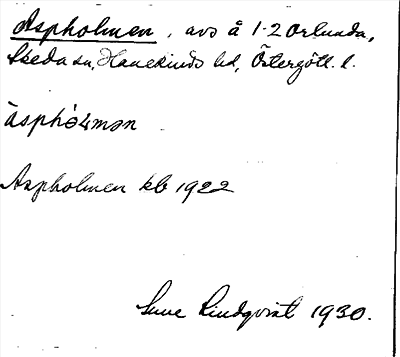 Aspholmen, avs å 1-2 Orlunda,
Skeda sn, Hanekinds hd, Östergötl. l.
àsphɷ́ɫmən
Aspholmen kb 1922
Sune Lindqvist 1930.